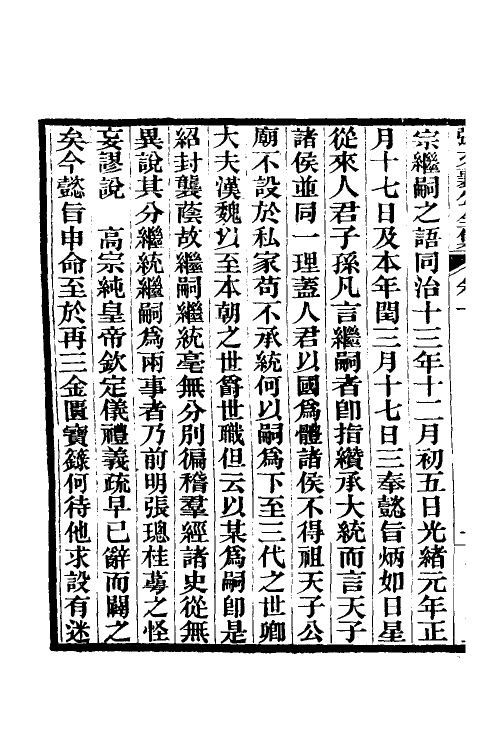 宗繼嗣之語同治十三年十二月初五日光緒元年正
月十七日及本年閏三月十七日三奉懿旨炳如日星
從來人君子孫凡言繼嗣者卽指纘承大統而言天子
諸侯並同一理蓋人君以國爲體諸侯不得祖天子公
廟不設於私家苟不承統何以嗣爲下至三代之世卿
大夫漢魏以至本朝之世爵世職但云以某爲嗣卽是
紹封襲蔭故繼嗣繼統毫無分別徧稽羣經諸史從無
異說其分繼統繼嗣爲兩事者乃前明張璁桂萼之怪
妄謬說　高宗純皇帝欽定儀禮義疏早已辭而闢之
矣今懿旨申命至於再三金匱寶錄何待他求設有迷